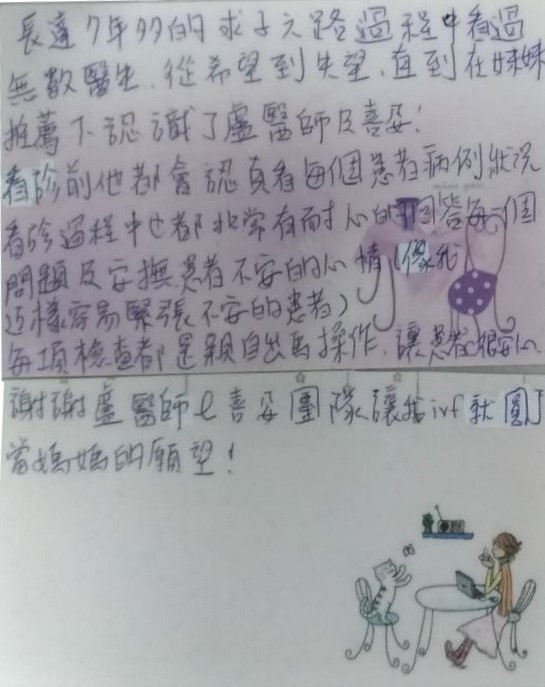 長達7年多的求子之路過程中看過
無數醫生，從希望到失望，直到在妹妹
推薦下認識了盧醫師及喜姿！
看診前他都會認真看每個患者病例狀況
看診過程中也都非常有耐心的回答每一個
問題及安撫患者不安的心情（像我
這樣容易緊張不安的患者）
每項檢查都是親自出馬操作，讓患者很安心
謝謝盧醫師&喜姿團隊讓我ivf就圓了
當媽媽的願望！